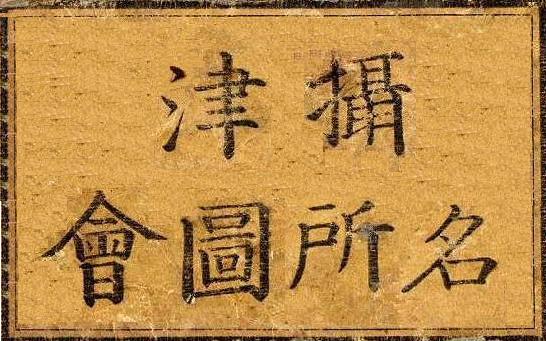 攝津
名所圖會